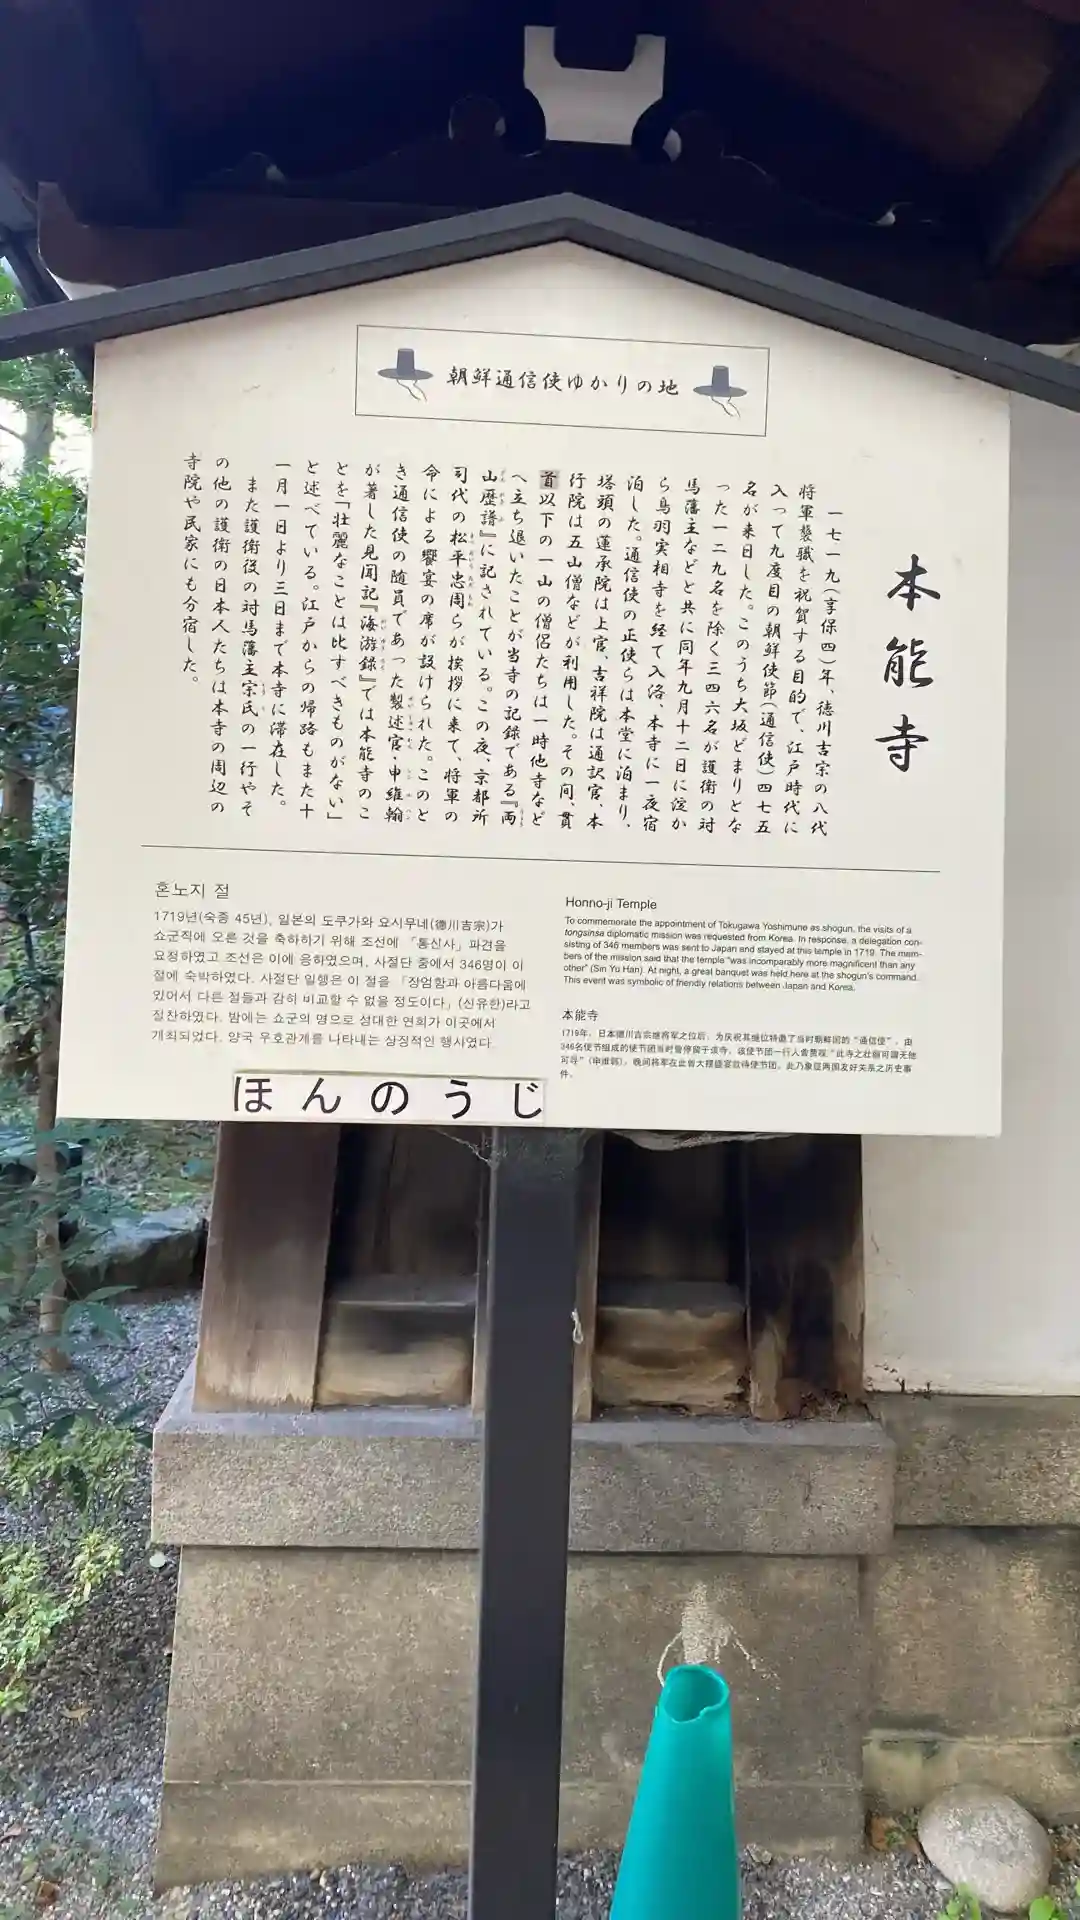 朝鮮通信使ゆかりの地
本能寺
一七一九(享保四)年、徳川吉宗の八代
将軍襲職を祝賀する目的で、江戸時代に
入って九度目の朝鮮使節(通信使)四七五
名が来日した。このうち大坂どまりとな
った一二九名を除く三四六名が護衛の対
馬藩主などと共に同年九月十二日に淀か
ら鳥羽実相寺を経て入洛、本寺に一夜宿
泊した。通信使の正使らは本堂に泊まり、
塔頭の蓮承院は上官、吉祥院は通訳官、本
行院は五山僧などが利用した。その間、貫
首以下の一山の僧侶たちは一時他寺など
へ立ち退いたことが当寺の記録である『両
山歴譜』に記されている。この夜、京都所
司代の松平忠周らが挨拶に来て、将軍の
命による饗宴の席が設けられた。このと
き通信使の随員であった製述官・申維翰
が著した見聞記『海游録』では本能寺のこ
とを「壮麗なことは比すべきものがない」
と述べている。江戸からの帰路もまた十
一月一日より三日まで本寺に滞在した。
また護衛役の対馬藩主宗氏の一行やそ
の他の護衛の日本人たちは本寺の周辺の
寺院や民家にも分宿した。
혼노지 절
1719년(숙종 45년), 일본의 도쿠가와 요시무네(德川吉宗)가
쇼군직에 오른 것을 축하하기 위해 조선에 「통신사」 파견을
요청하였고 조선은 이에 응하였으며, 사절단 중에서 346명이 이
절에 숙박하였다. 사절단 일행은 이 절을 「장엄함과 아름다움에
있어서 다른 절들과 감히 비교할 수 없을 정도이다」(신유한)라고
절찬하였다. 밤에는 쇼군의 명으로 성대한 연회가 이곳에서
개최되었다. 양국 우호관계를 나타내는 상징적인 행사였다.
Honno-ji Temple
To commemorate the appointment of Tokugawa Yoshimune as shogun, the visits of a
tongsinsa diplomatic mission was requested from Korea. In response, a delegation con-
sisting of 346 members was sent to Japan and stayed at this temple in 1719. The mem-
bers of the mission said that the temple "was incomparably more magnificent than any
other" (Sin Yu Han). At night, a great banquet was held here at the shogun's command.
This event was symbolic of friendly relations between Japan and Korea.
本能寺
1719年，日本德川吉宗继将军之位后，为庆祝其继位特邀了当时朝鲜国的“通信使”，由
346名使节组成的使节团当时曾停留于该寺，该使节团一行人曾赞叹“此寺之壮丽可谓无他
可寻”（申维翰）。晚间将军在此曾大摆盛宴款待使节团。此乃象征两国友好关系之历史事
件。
ほんのうじ